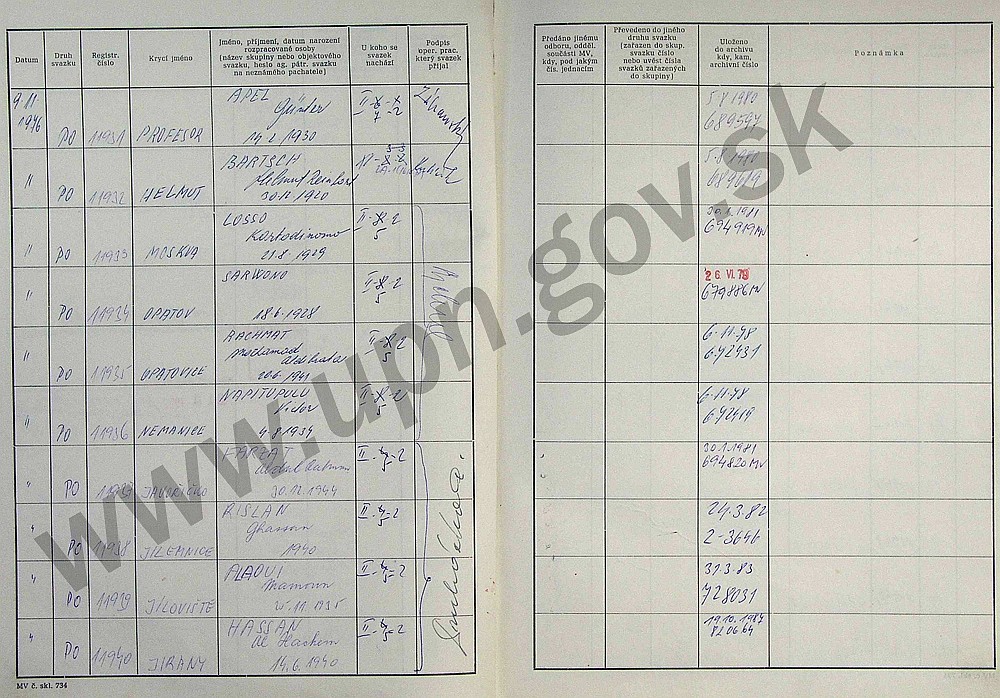 Datum
Druh
svazku
Registr.
číslo
Krycí jméno
Jméno, příjmení, datum narození
rozpracované osoby
(název skupiny nebo objektového
svazku, heslo ag. pátr. svazku
na neznámého pachatele)
U koho se
svazek
nachází
Podpis
oper. prac.
který svazek
přijal
Předáno jinému
odboru, odděl.
součásti MV,
kdy, pod jakým
čís. jednacím
Převedeno do jiného
druhu svazku
(zařazen do skup.
svazku číslo
nebo uvést čísla
svazků zařazených
do skupiny)
Uloženo
do archivu
kdy, kam,
archivní číslo
Poznámka
9 11
1976 PO 11931 PROFESOR
APEL
Günter
14. 2. 1930
5-8-1980
689597
" PO 11932 HELMUT
BARTSCH
Helmut
30. 12. 1920
5-8-1980
" PO 11933 MOSKVA
LOSSO
21. 8. 1929
II-8-2
5
30. 1. 1981
694919 MV
" PO 11934 OPATOV
SARWONO
18. 6. 1928
II-8-2
5
26. VI. 79
679886 MV
" PO 11935 OPATOVICE
RACHMAT
Mochamad
20. 6. 1941
II-8-2
5
6-11-78
672431
" PO 11936 NEMANICE
NAPITUPULU
4-8-1934
II-8-2
5
6-11-78
672419
" PO 11937 JAVOŘÍČKO
30. 12. 1944
30. 1. 1981
694820 MV
" PO 11938 JILEMNICE
RISLAN
Ghassan
1940
24. 3. 82
2-3646
" PO 11939 JÍLOVIŠTĚ
ALAOUI
Mamoun
31. 3. 83
728031
" PO 11940 JIRANY
HASSAN
Al Hachem
14. 6. 1940
19. 10. 1987
MV č. skl. 734
www.upn.gov.sk